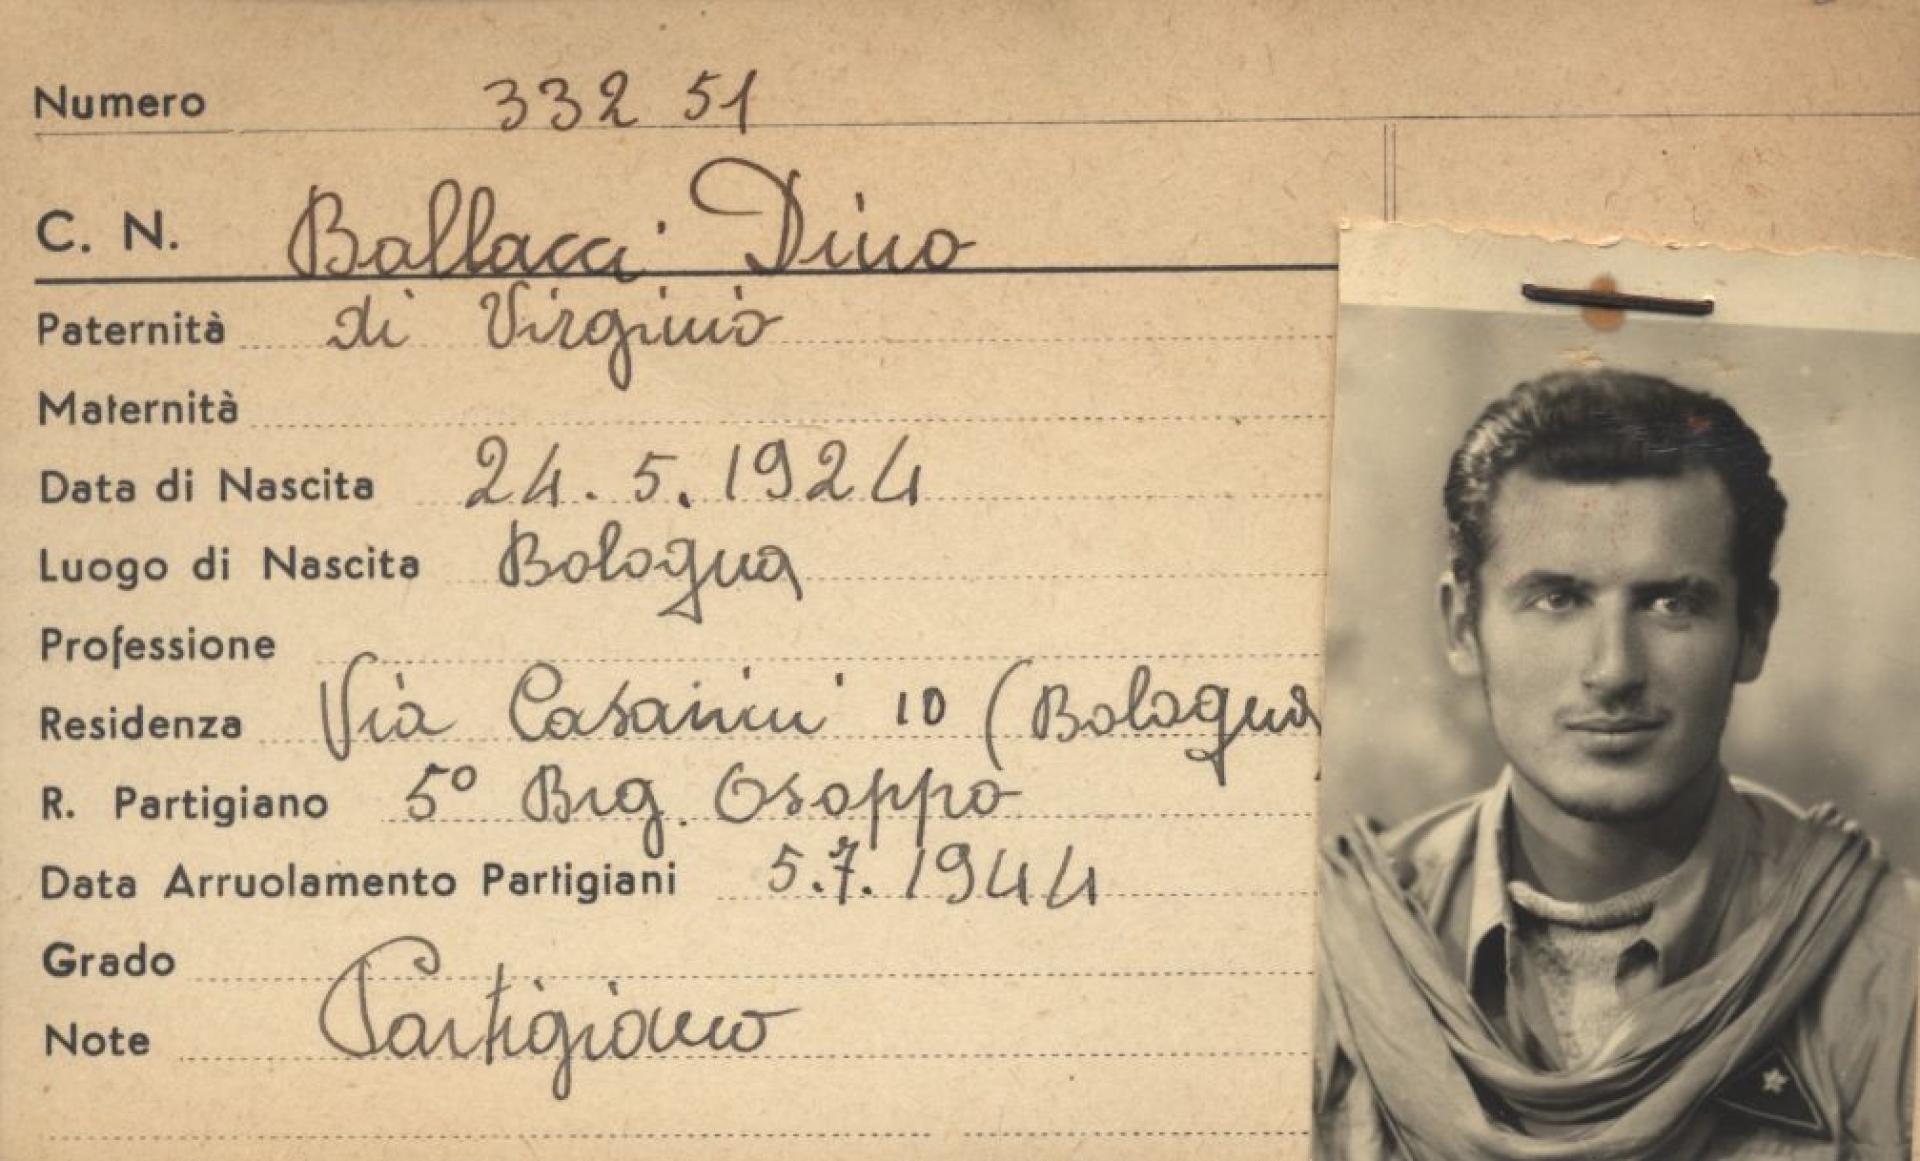 Numero 332 51
C. N. Ballacci Dino
Paternità di Virginio
Maternità
Data di Nascita 24.5.1924
Luogo di Nascita Bologna
Professione
Residenza Via Casarini 10 (Bologna
R. Partigiano 5º Brg. Osoppo
Data Arruolamento Partigiani 5.7.1944
Grado
Note Partigiano